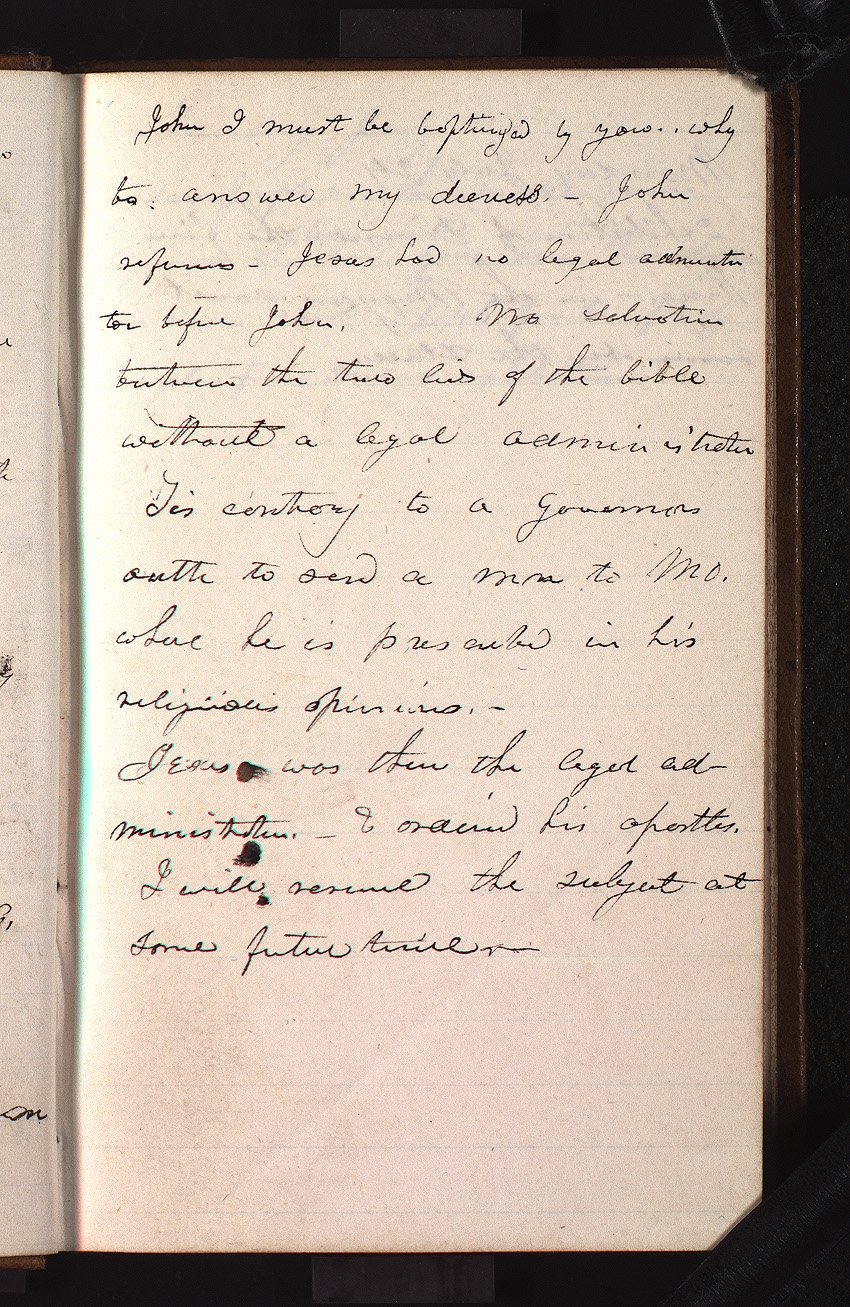 John I must be baptized by you.. why
to. answer my decrees. – John
refuses – Jesus had no legal administra
tor before John. No Salvation
between the two lids of the bible
without a legal administrator
Tis contrary to a Governors
oath to send a man to Mo.
where he is prescribed in his
religious opinions. –
Jesus was then the legal ad-
ministrator. – & ordained his apostles.
I will resume the subject at
some future time –